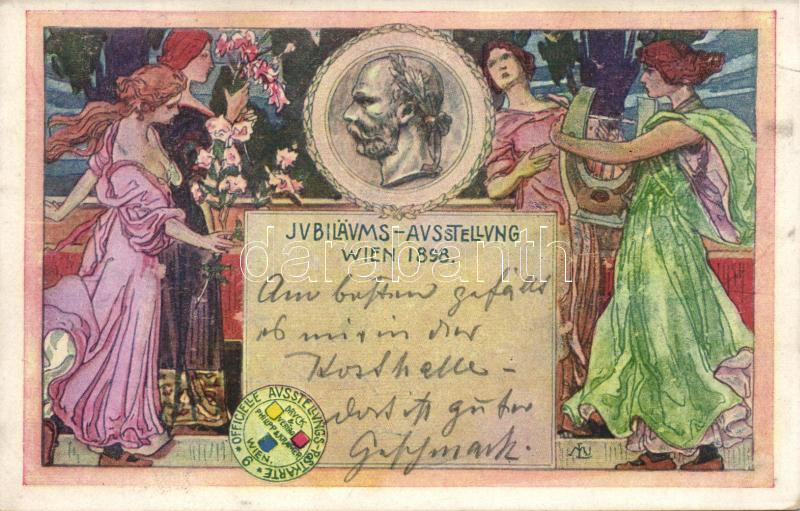 JVBILÄVMS-AVSSTELLVNG
WIEN 1898.
Am besten gefällt
es mir in der
Kosthalle -
dort ist guter
Geschmack.
* OFFICIELLE AVSSTELLUNGS-POSTKARTE * 9
DRVCK & VERLAG
PHILIPP & KRAMER
WIEN.
darabanth